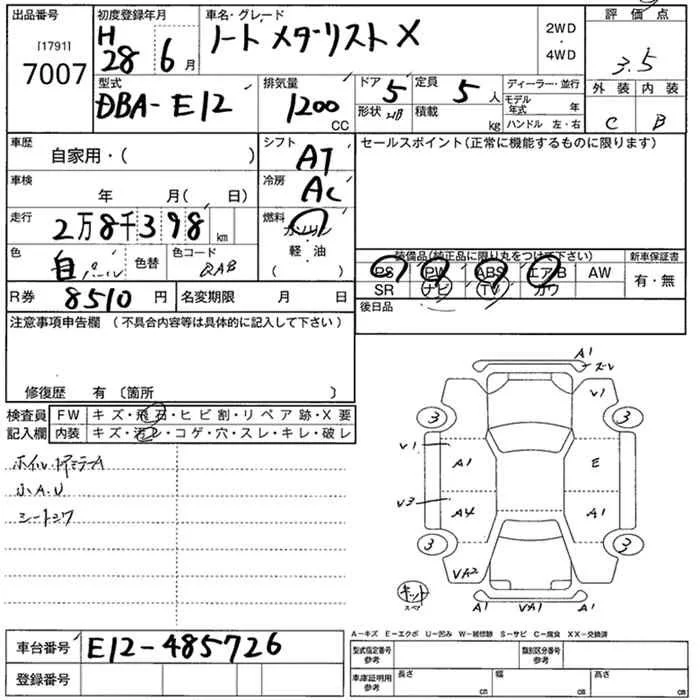 出品番号
[1791]
7007
初度登録年月
H 28 6 月
車名・グレード
ノート メダリスト X
2WD
・
4WD
評価点
3.5
外装 内装
C B
型式
DBA-E12
排気量
1200
CC
ドア 5
形状 HB
定員 5 人
積載 kg
ディーラー・並行
モデル年式 年
ハンドル 左・右
車歴
自家用・( )
車検
年 月( 日)
走行
2万8千398 km
色
白パール
色替
色コード
QAB
シフト
AT
冷房
AC
燃料
ガソリン
軽・油
( )
セールスポイント(正常に機能するものに限ります)
装備品(純正品に限り丸をつけて下さい)
PS PW ABS エアB AW
SR ナビ TV カワ
新車保証書
有・無
後日品
R券 8510 円
名変期限 月 日
注意事項申告欄 (不具合内容等は具体的に記入して下さい)
修復歴 有 〔箇所 〕
検査員
記入欄
FW キズ・飛石・ヒビ割・リペア跡・X要
内装 キズ・汚レ・コゲ・穴・スレ・キレ・破レ
小A.U
A1
スレ
V1
3 3
V1
A1 E
V3
A4 A1
3 3
VA2
キット
スペア
A1 VA1 A1
A-キズ E-エクボ U-凹み W-補修跡 S-サビ C-腐食 XX-交換済
車台番号 E12-485726
登録番号
型式指定番号
参考
類別区分番号
参考
車庫証明用
参考
長さ cm
幅 cm
高さ cm